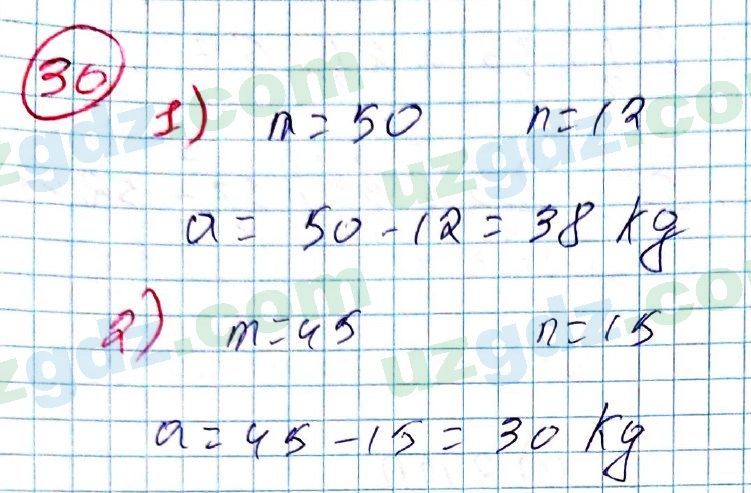 30
1) m = 50 n = 12
a = 50 - 12 = 38 kg
2) m = 45 n = 15
a = 45 - 15 = 30 kg
uzgdz.com
uzgdz.com
uzgdz.com
uzgdz.com